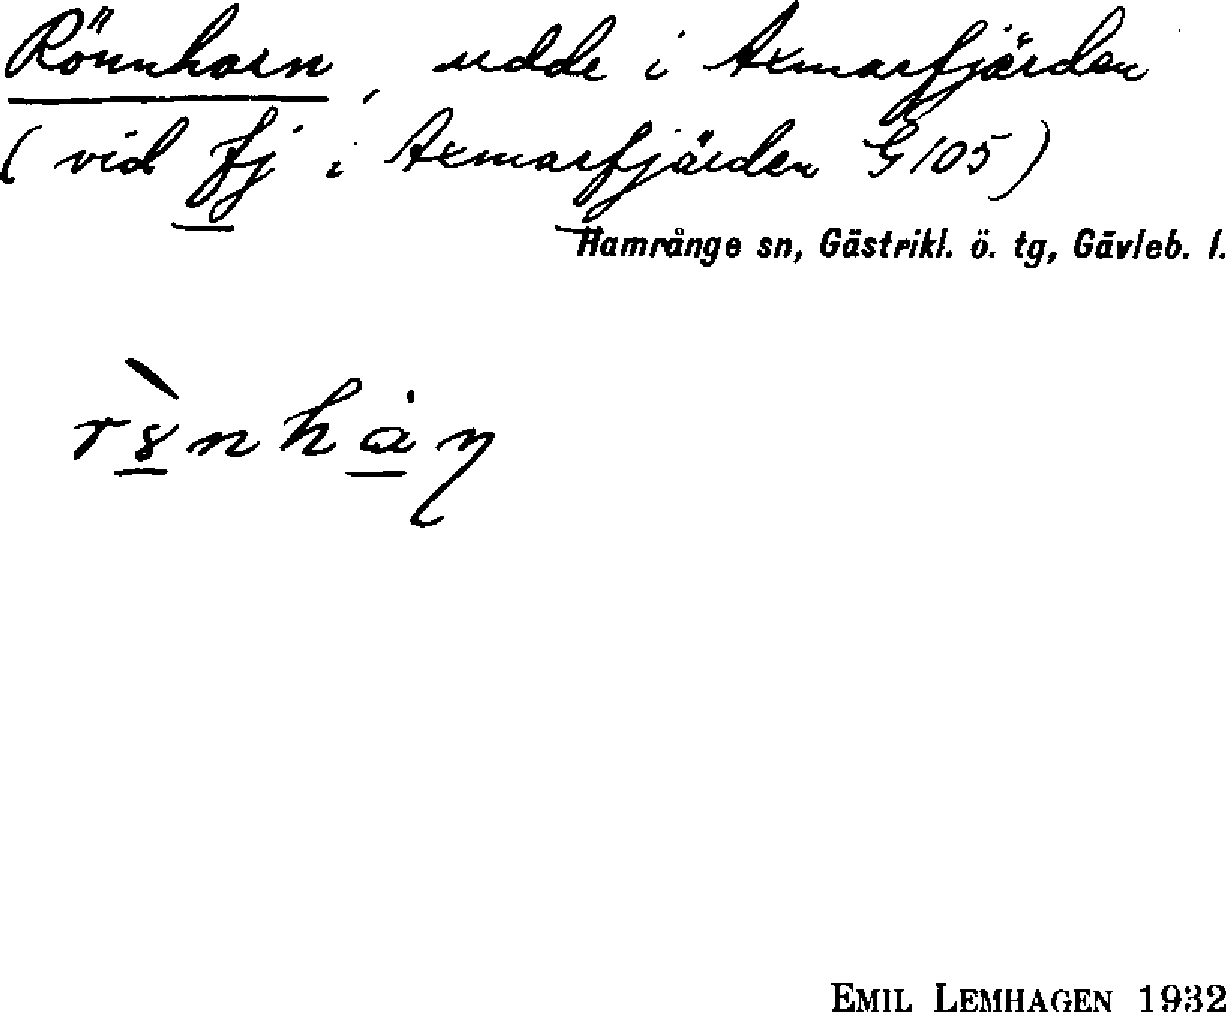 Rönnhorn, udde i Axmarfjärden
(vid fj i Axmarfjärden G105)
Hamrånge sn, Gästrikl. ö. tg, Gävleb. l.
EMIL LEMHAGEN 1932